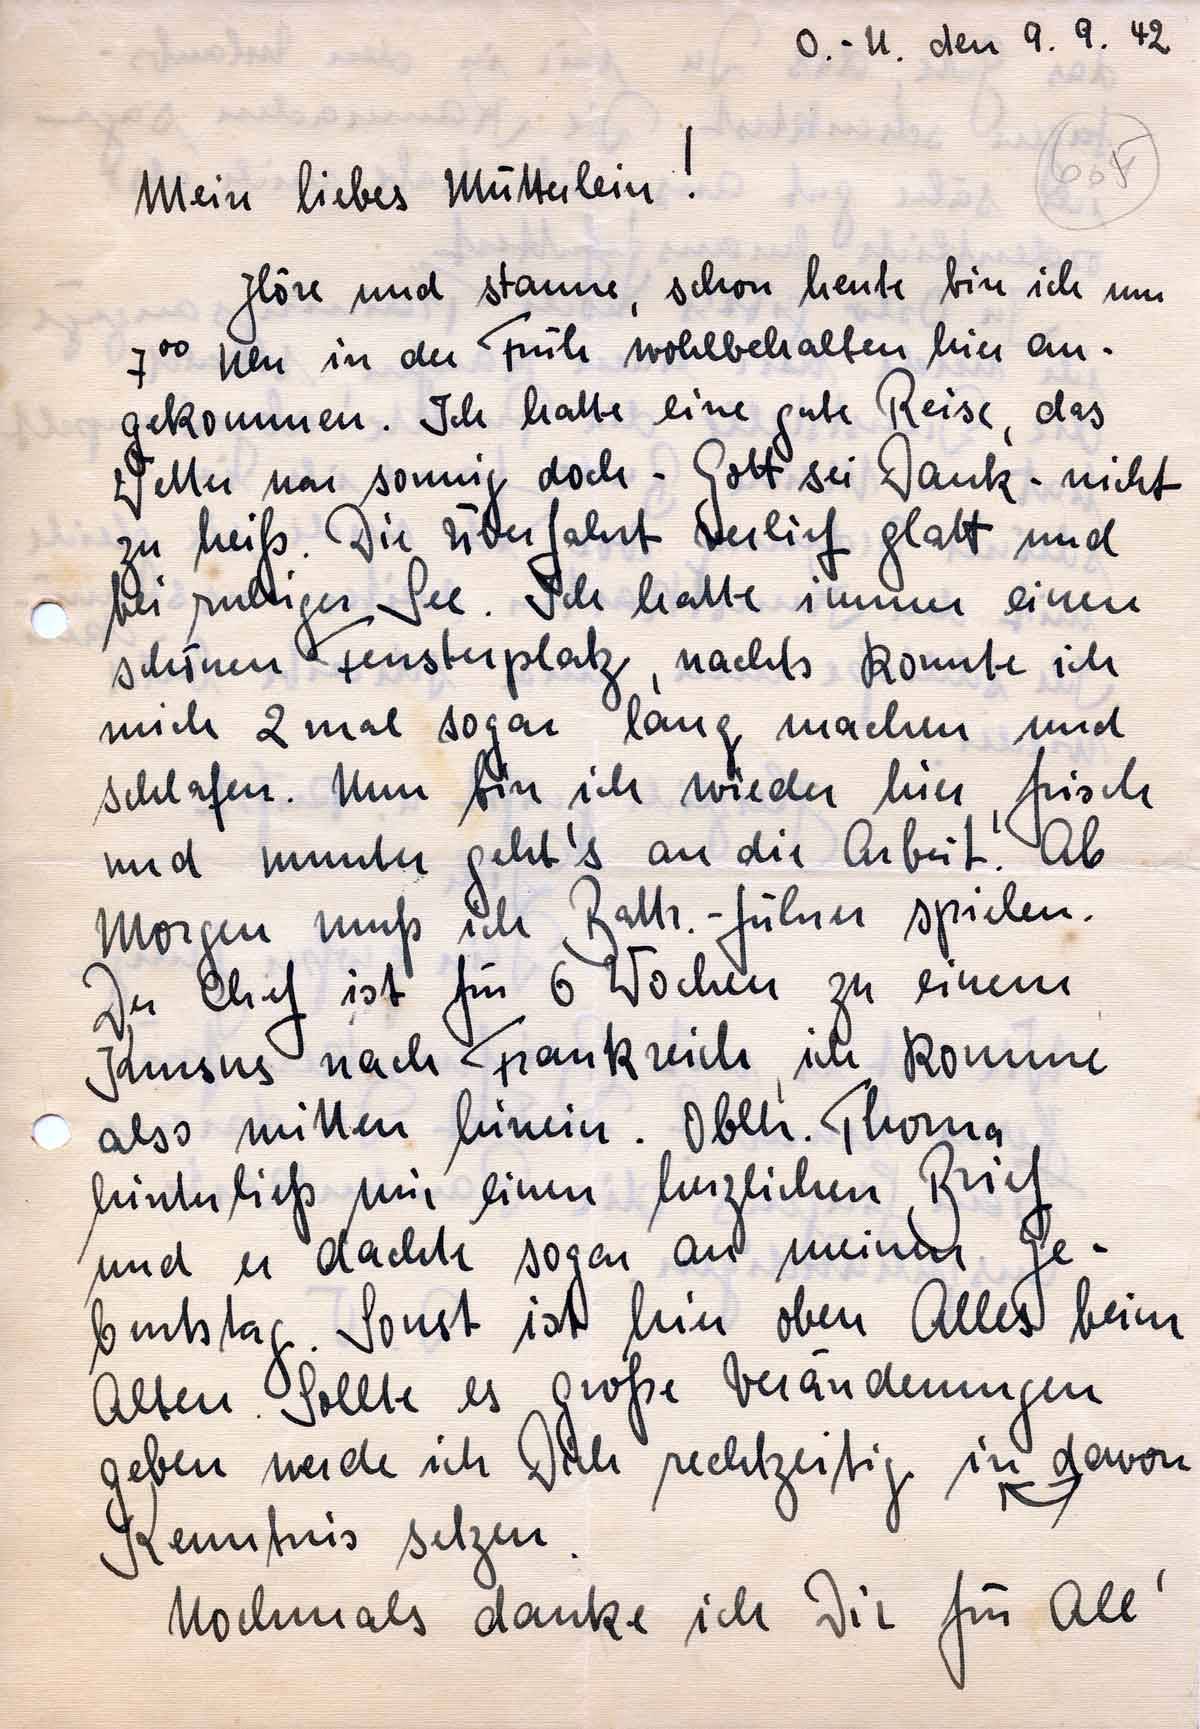 O.-U. den 9. 9. 42
605
Mein liebes Mütterlein!
Höre und staune, schon heute bin ich um
7⁰⁰ Uhr in der Früh wohlbehalten hier an-
gekommen. Ich hatte eine gute Reise, das
Wetter war sonnig doch - Gott sei Dank - nicht
zu heiß. Die Überfahrt verlief glatt und
bei ruhiger See. Ich hatte immer einen
schönen Fensterplatz, nachts konnte ich
mich 2 mal sogar lang machen und
schlafen. Nun bin ich wieder hier, frisch
und munter geht's an die Arbeit! Ab
Morgen muß ich Battr.-führer spielen.
Der Chef ist für 6 Wochen zu einem
Kursus nach Frankreich, ich komme
also mitten hinein. Oblt. Thoma
hinterließ mir einen herzlichen Brief
und er dachte sogar an meinen Ge-
burtstag. Sonst ist hier oben Alles beim
Alten. Sollte es große Veränderungen
geben werde ich Dich rechtzeitig in davon
Kenntnis setzen.
Nochmals danke ich Dir für All'